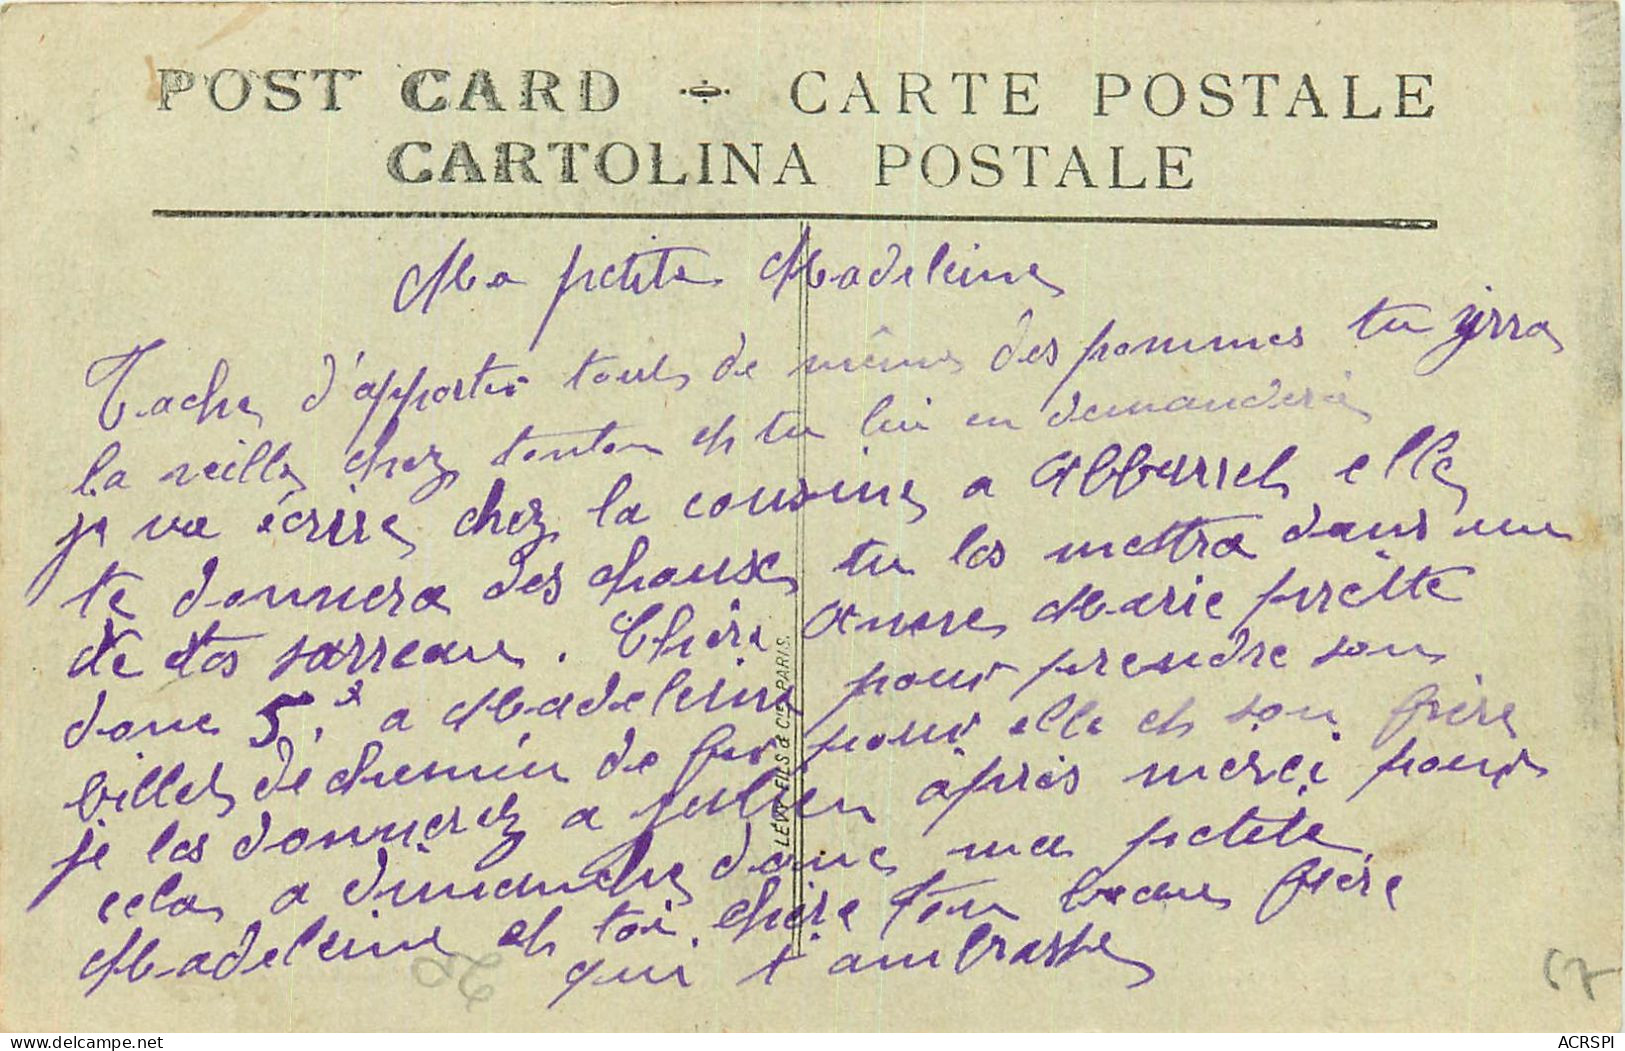 POST CARD ÷ CARTE POSTALE
CARTOLINA POSTALE
Ma petite Madeleine
Tache d'apporter tout de même des pommes tu yirra
la veille chez tonton et tu lui en demandera
je va écrire chez la cousine a elle
te donnera des chouse tu les mettra dans un
de tes sarreau. Chère Anne Marie prête
donc 5.f a Madeleine pour prendre son
billet de chemin de fer pour elle et son frère
je les donnerez a julien après merci pour
cela a dimanche donc ma petite
Madeleine et toi chère ton beau frère
qui t'ambrasse
LÉVY FILS & Cie PARIS.
67
ACRSPI